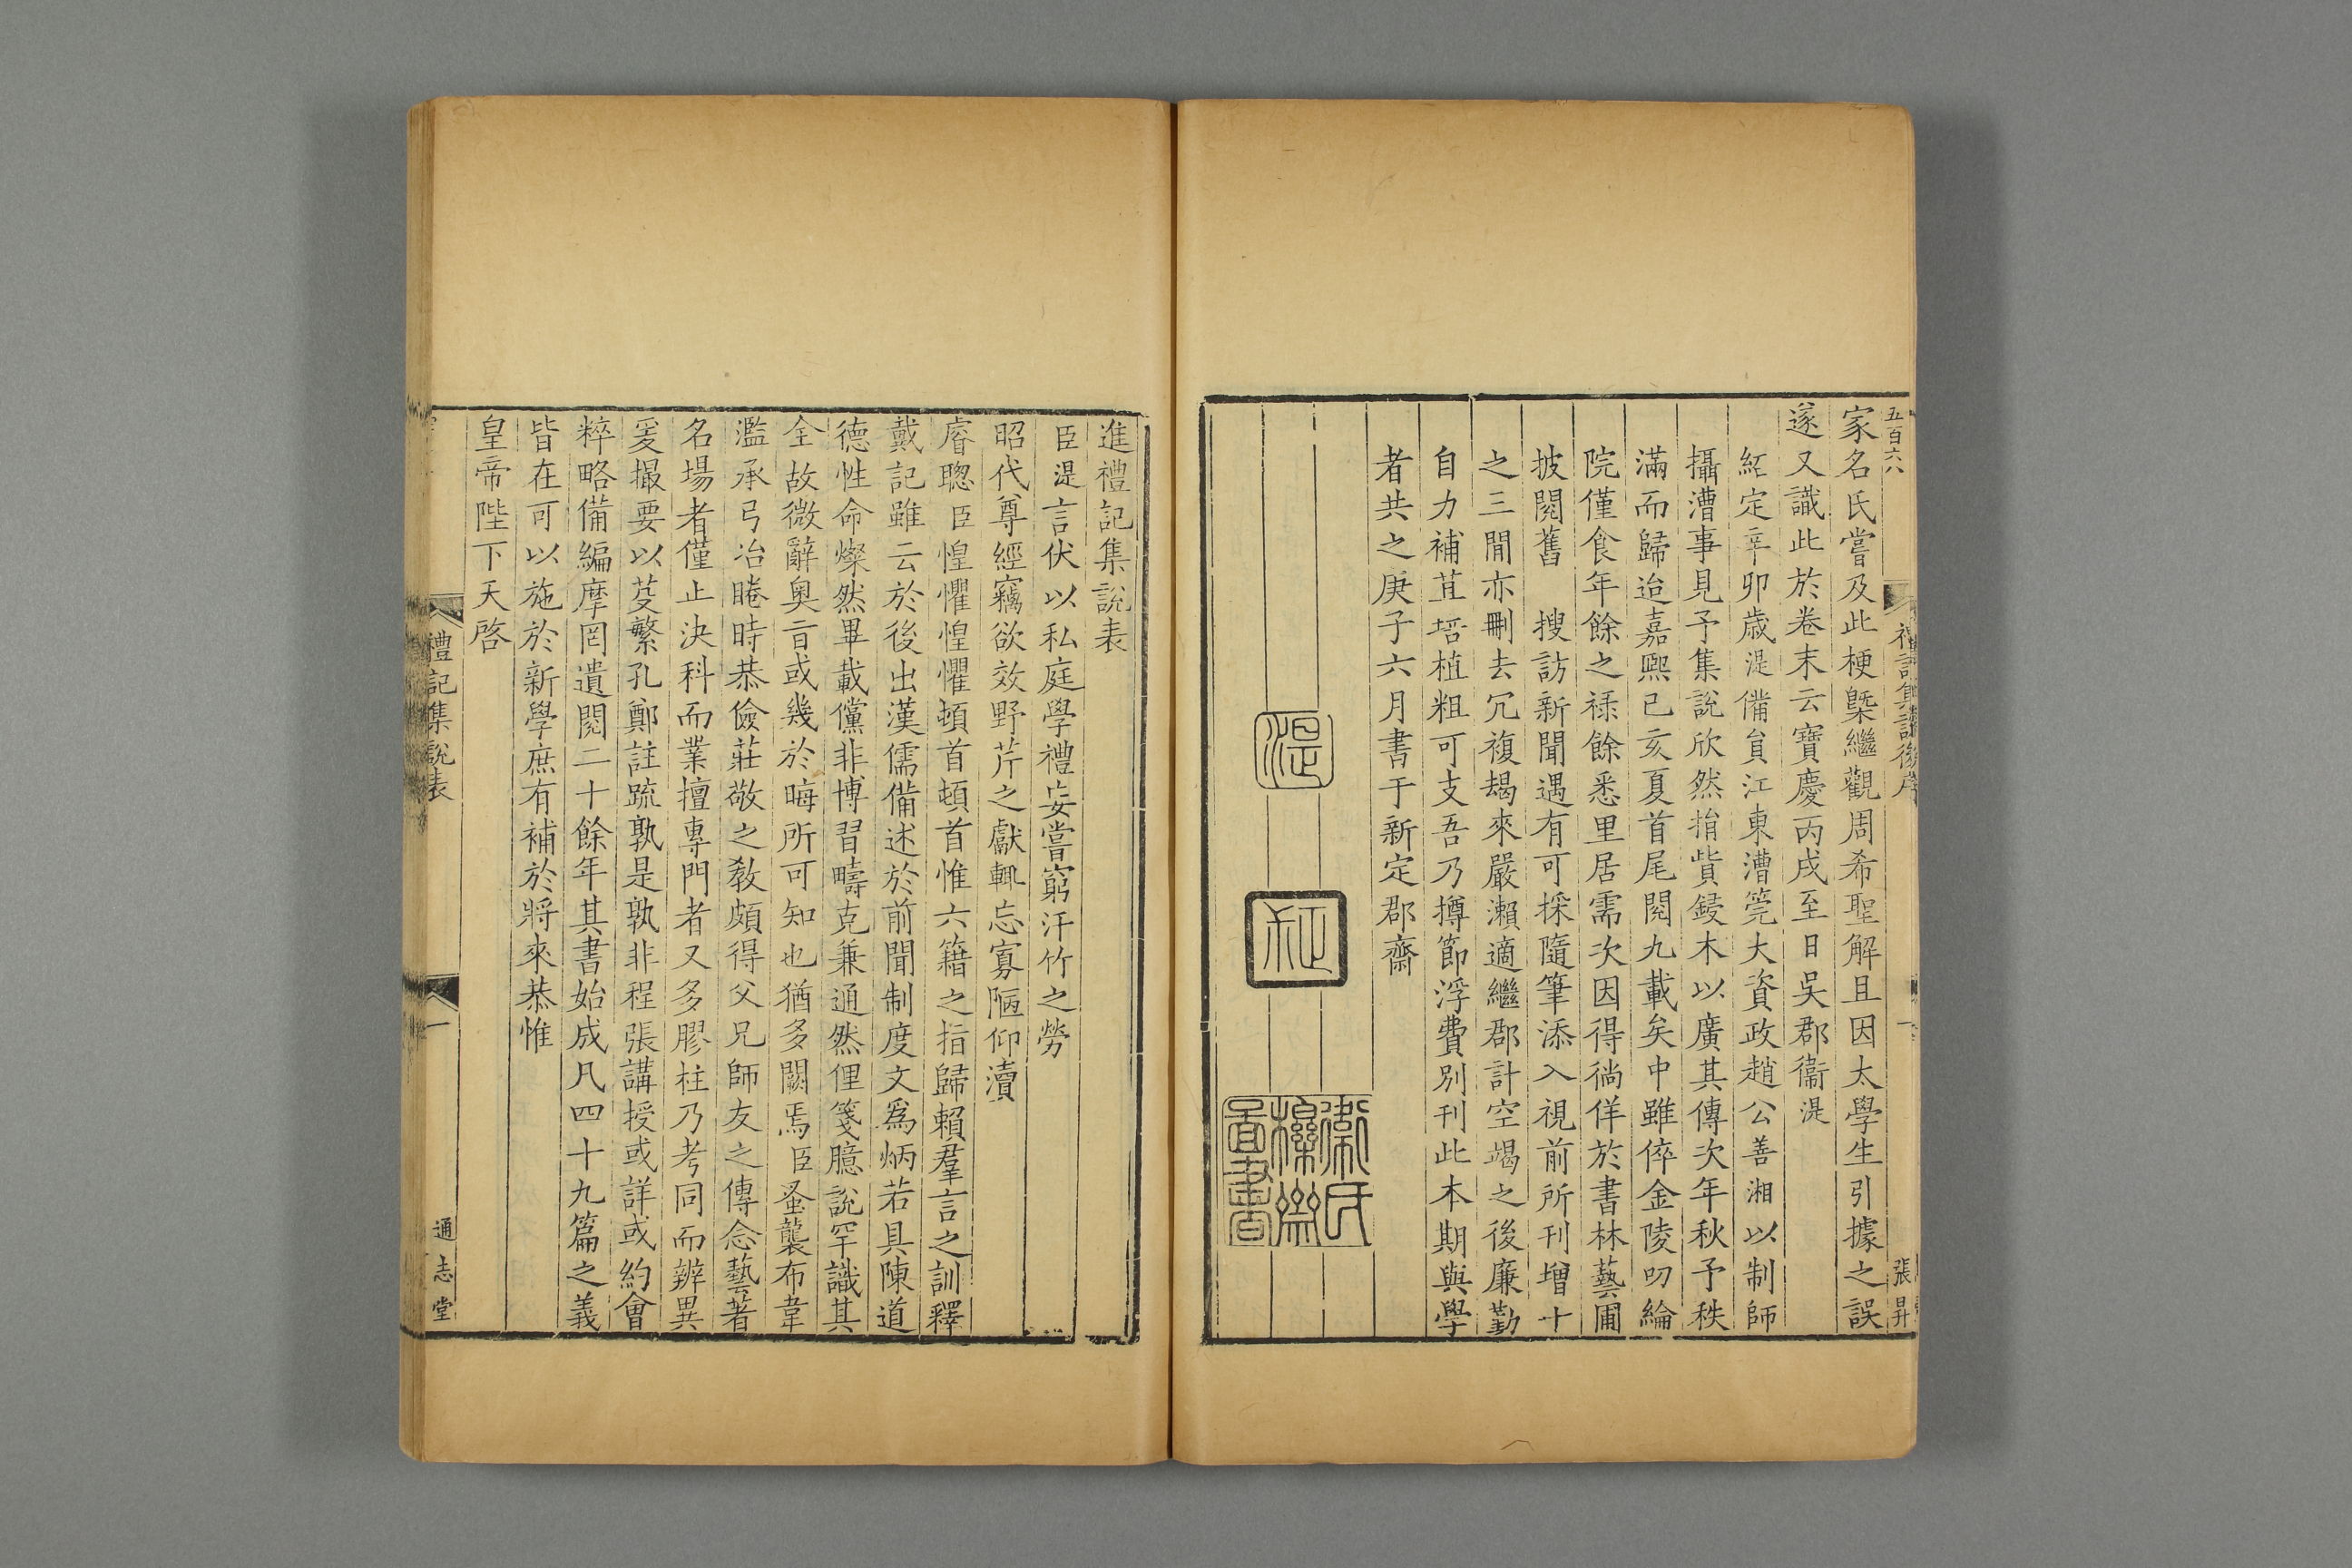 五百六八
禮記集說後序
一
張昇
家名氏嘗及此梗槩繼觀周希聖解且因太學生引據之誤
遂又識此於卷末云寶慶丙戌至日吳郡衞湜
紹定辛卯歲湜備員江東漕筦大資政趙公善湘以制師
攝漕事見予集說欣然捐貲鋟木以廣其傳次年秋予秩
滿而歸迨嘉熙己亥夏首尾閱九載矣中雖倅金陵叨綸
院僅食年餘之祿餘悉里居需次因得徜徉於書林藝圃
披閱舊 搜訪新聞遇有可採隨筆添入視前所刊增十
之三間亦刪去冗複朅來嚴瀨適繼郡計空竭之後廉勤
自力補苴培植粗可支吾乃撙節浮費別刊此本期與學
者共之庚子六月書于新定郡齋
湜
衞氏櫟齋圖書
進禮記集說表
臣湜言伏以私庭學禮妄嘗窮汗竹之勞
昭代尊經竊欲效野芹之獻輒忘寡陋仰瀆
睿聰臣惶懼惶懼頓首頓首惟六籍之指歸賴羣言之訓釋
戴記雖云於後出漢儒備述於前聞制度文爲炳若具陳道
德性命燦然畢載儻非博習疇克兼通然俚箋臆說罕識其
全故微辭奧旨或幾於晦所可知也猶多闕焉臣蚤襲布韋
濫承弓冶睠時恭儉莊敬之教頗得父兄師友之傳念藝著
名場者僅止決科而業擅專門者又多膠柱乃考同而辨異
爰撮要以芟繁孔鄭註疏孰是孰非程張講授或詳或約會
粹略備編摩罔遺閱二十餘年其書始成凡四十九篇之義
皆在可以施於新學庶有補於將來恭惟
皇帝陛下天啓
禮記集說表
一
通志堂